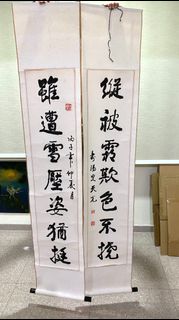 縱被霜欺色不撓
雖遭雪壓姿猶挺